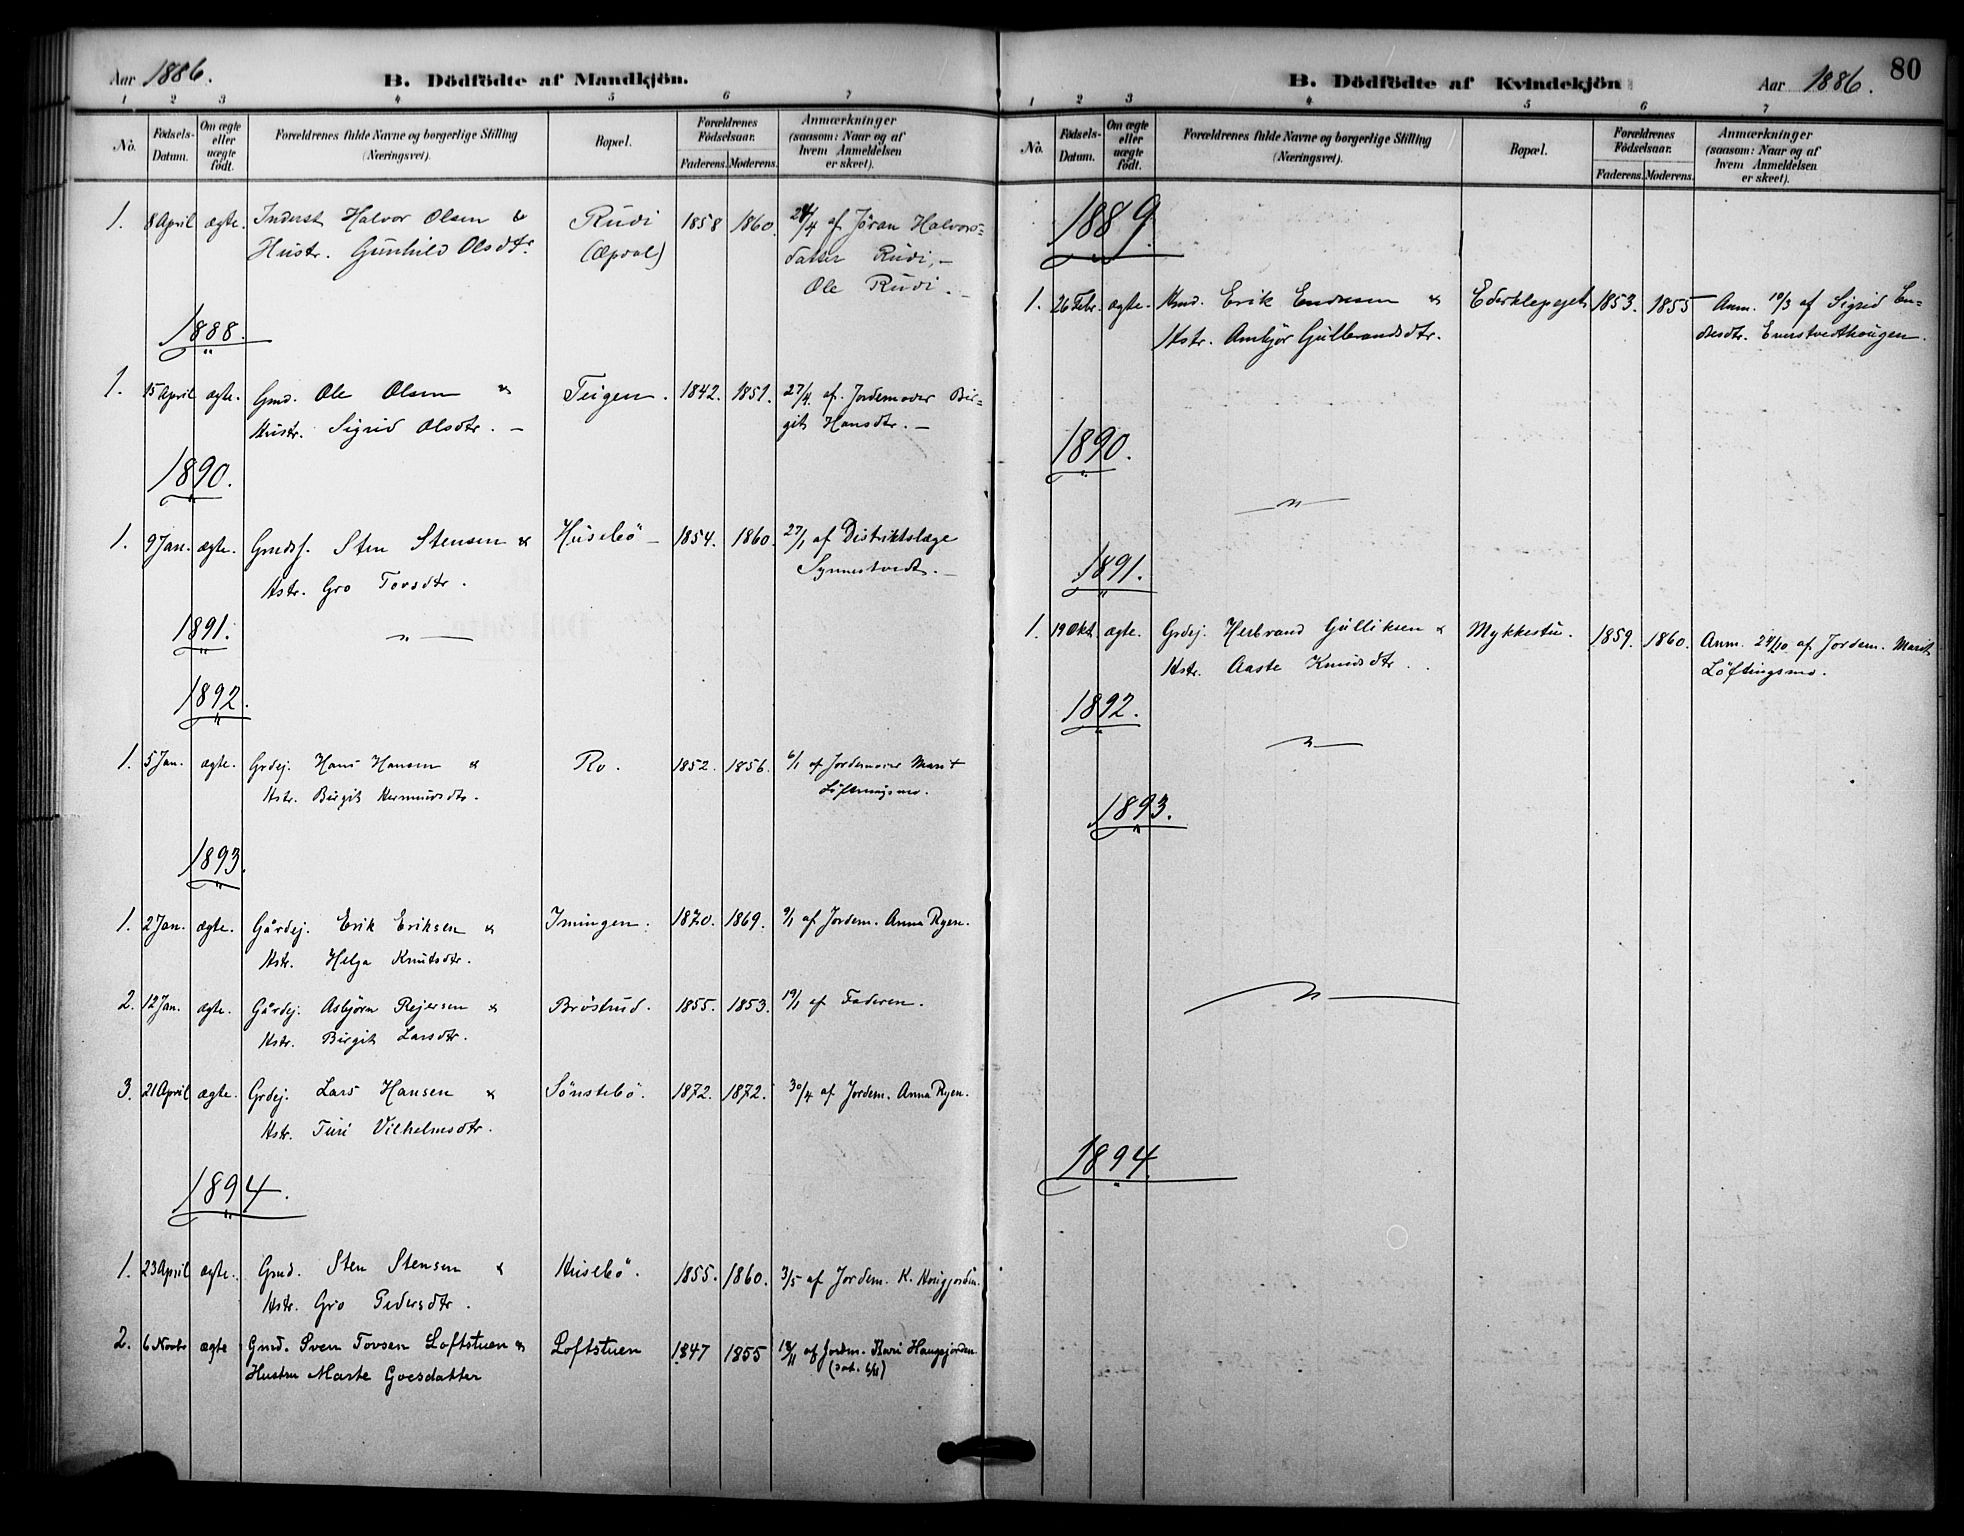 Aar 1886.
B. Dödfödte af Mandkjön.
1 2 3 4 5 6 7
No.
Födsels-Datum.
Om ægte eller uægte födt.
Forældrenes fulde Navne og borgerlige Stilling (Næringsvei).
Bopæl.
Forældrenes Födselsaar.
Faderens. Moderens.
Anmærkninger (saasom: Naar og af hvem Anmeldelsen er skeet).
1. 8 April ægte. Inderst Halvor Olsen & Rudi 1858 1860. 24/4 af Jöran Halvors-
Hustr. Gunhild Olsdtr. (Opdal) datter Rudi, –
Ole Rudi. –
1888.
1. 15 April ægte. Gmd. Ole Olsen & Teigen. 1842. 1851. 27/4. af. Jordemoder Bir-
Hustr. Sigrid Olsdtr. – git Hansdtr. –
1890.
1. 9 Jan. ægte. Gmds. Sten Stensen & Husebö – 1854. 1860. 27/1 af Distriktslæge
Hstr. Gro Torsdtr. Synnestvedt. –
1891.
– " –
1892.
1. 5 Jan. ægte. Grdej. Hans Hansen & Ro. 1852. 1856. 6/1 af Jordemoder Marit
Hstr. Birgit Hermundsdtr. Löftingsmo.
1893.
1. 2 Jan. ægte. Gårdej. Erik Eriksen & Imingen. 1870. 1869. 9/1 af Jordem. Anna Ryen.
Hstr. Helga Knutsdtr.
2. 12 Jan. ægte. Gårdej. Asbjörn Rejersen & Bröstrud. 1855. 1853. 19/1 af Faderen.
Hstr. Birgit Larsdtr.
3. 21 April ægte. Grdej. Lars Hansen & Sönstebö. 1872. 1872. 30/4 af Jordem. Anna Ryen.
Hstr. Turi Vilhelmsdtr.
1894.
1. 23 April ægte. Gmd. Sten Stensen & Husebö. 1855. 1860. 3/5 af Jordem. K.
Hstr. Gro Pedersdtr.
2. 6 Novbr ægte Gmd. Sven Tovsen Loftstuen & Loftstuen 1847 1855 18/11 af Jordm. Kari Haugjorden
Hustru Marte Goesdatter
B. Dödfödte af Kvindekjön
Aar 1886.
80
1 2 3 4 5 6 7
No.
Födsels-Datum.
Om ægte eller uægte födt.
Forældrenes fulde Navne og borgerlige Stilling (Næringsvei).
Bopæl.
Forældrenes Födselsaar.
Faderens. Moderens.
Anmærkninger (saasom: Naar og af hvem Anmeldelsen er skeet).
1889.
1. 26 Febr. ægte. Kmd. Erik Endresen & 1853. 1855 – Anm. 10/3 af Sigrid En-
Hstr. Ambjör Gulbrandsdtr. dresdtr. Everstvedthaugen.
1890.
– " –
1891.
1. 19 Okt. ægte. Grdej. Herbrand Gulliksen & Mykkestu. 1859. 1860. Anm. 24/10 af Jordem. Marit
Hstr. Aaste Knudsdtr. Löftingsmo.
1892.
– " –
1893.
– " –
1894.